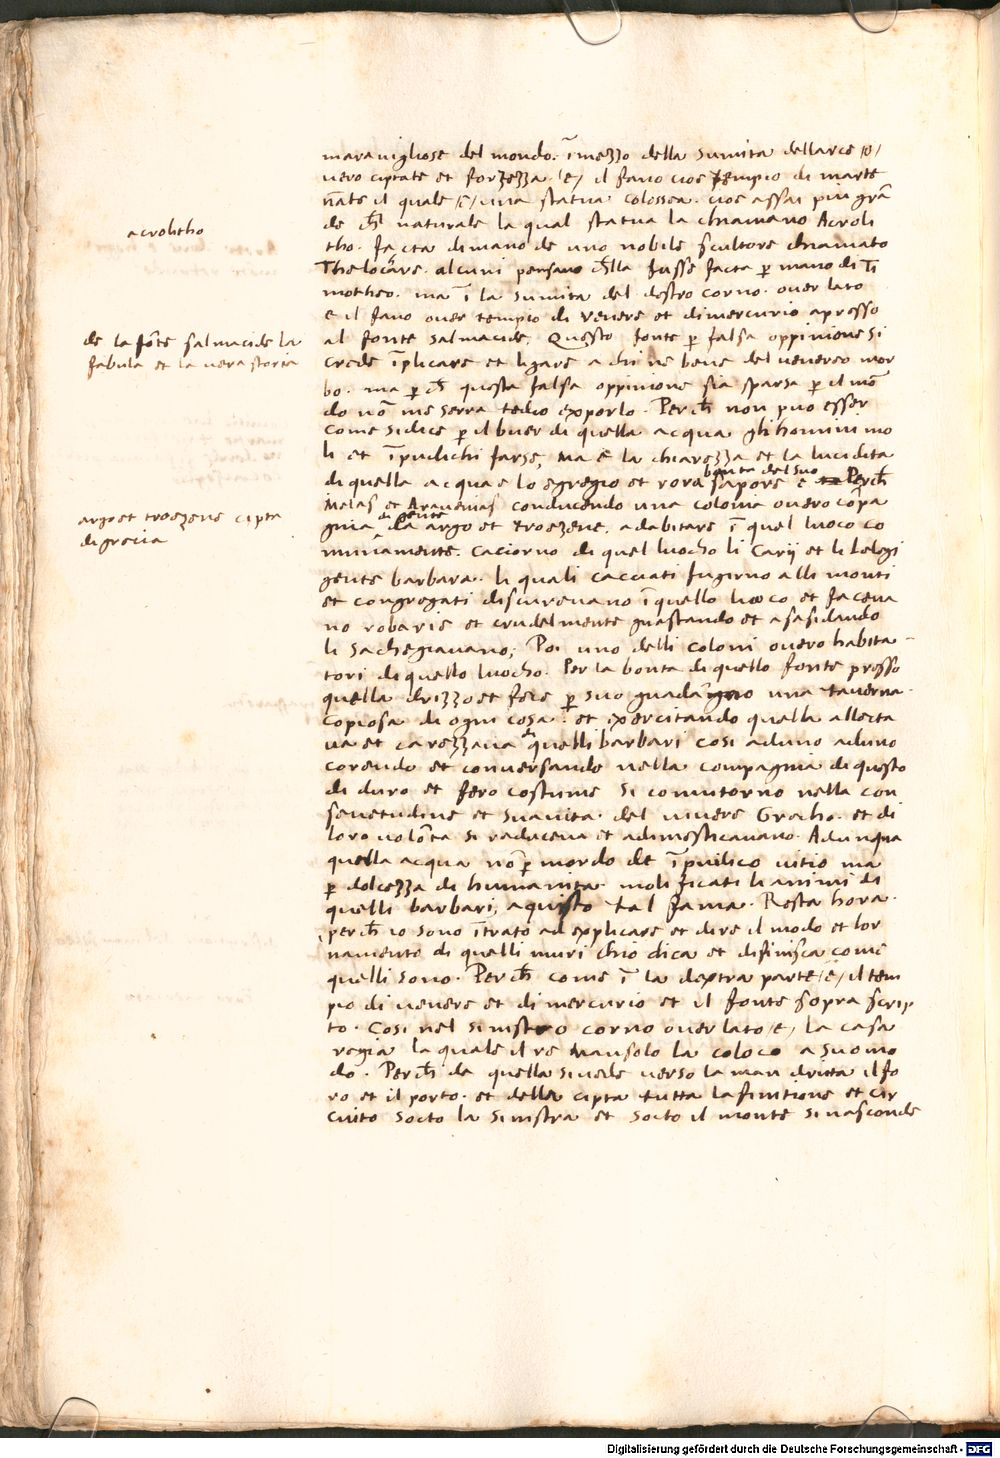 maravigliose del mondo. ĩ mezzo della sumita dellarce /o/
vero ciptate et forzezza /e/ il fano cioe tempio di marte
nãte il quale /e/ una statua colossea. cioe assai piu grã
de ch̃l naturale la qual statua la chiamano Acroli
tho. facta dimano de uno nobile scultore chiamato
Thelocãre. alcuni pensano ch̃lla fusse facta ꝑ mano di Ti
motheo. ma ĩ la sumita del destro corno. over lato
e il fano over tempio di venere et dimercurio apresso
al fonte salmacide. Questo fonte ꝑ falsa oppinione si
crede ĩplicare et ligare a chi ne beve del venereo mor
bo. ma ꝑch̃ questa falsa oppinione sia sparsa ꝑ il mõ
do nõ me serra tedio exporlo. Perch̃ non puo esser
come sidice ꝑ il bver di quella acqua gli homini mo
li et ĩpudichi farse, Ma è la chiarezza et la lucidita
bonta del suo
di quella acqua e lo egregio et sapore e Perch̃
Melas et Aravanias conducendo una colonia overo cõpa
di gente
gnia da argo et troezene. adabitare ĩ quel luoco co
munamente. Caciorno di quel luocho li Carij et li Lelegi
gente barbara. li quali cacciati fugirno alli monti
et congregati discurevano ĩ quello luoco et faceva
no robarie et crudelmente guastando et asasidando
li sachegiavano; Poi uno delli coloni overo habita
tori di quello luocho. Per la bonta di quello fonte presso
quella drizzo et fece ꝑ suo guadagno una taverna
copiosa di ogni cosa. et exercitando quella allecta
va et carezzava quelli barbari cosi aduno aduno
corendo et conversando nella compagnia di questo
di duro et fero costume si convitorno nella con
sevetudine et suavita del vivere Grecho. et di
loro volõta si raduceva et adimesticavano. Adunqua
quella acqua nõ ꝑ mordo de ĩpudico vitio ma
ꝑ dolcezza di humanita molificati li animi di
quelli barbari, aquisto tal fama. Resta hora.
perch̃ io sono ĩtrato ad explicare et dire il modo et lor
namento di quelli muri chio dica et difinisca come
quelli sono. Perch̃ come ĩ la dextra parte /e/ il tem
pio di venere et dimercurio et il fonte sopra scrip
to. Cosi nel sinistro corno over lato /e/ la casa
regia la quale il re Mausolo la coloco a suo mo
do. Perch̃ da quella sivede verso la man dritta il fo
ro et il porto. et della cipta tutta la finitione et cir
cuito Socto la sinistra et socto il monte si nasconde
acrolitho
de la fõte salmacide la
fabula et la vera storia
argo et troezene cipta
di grecia
Digitalisierung gefördert durch die Deutsche Forschungsgemeinschaft - DFG